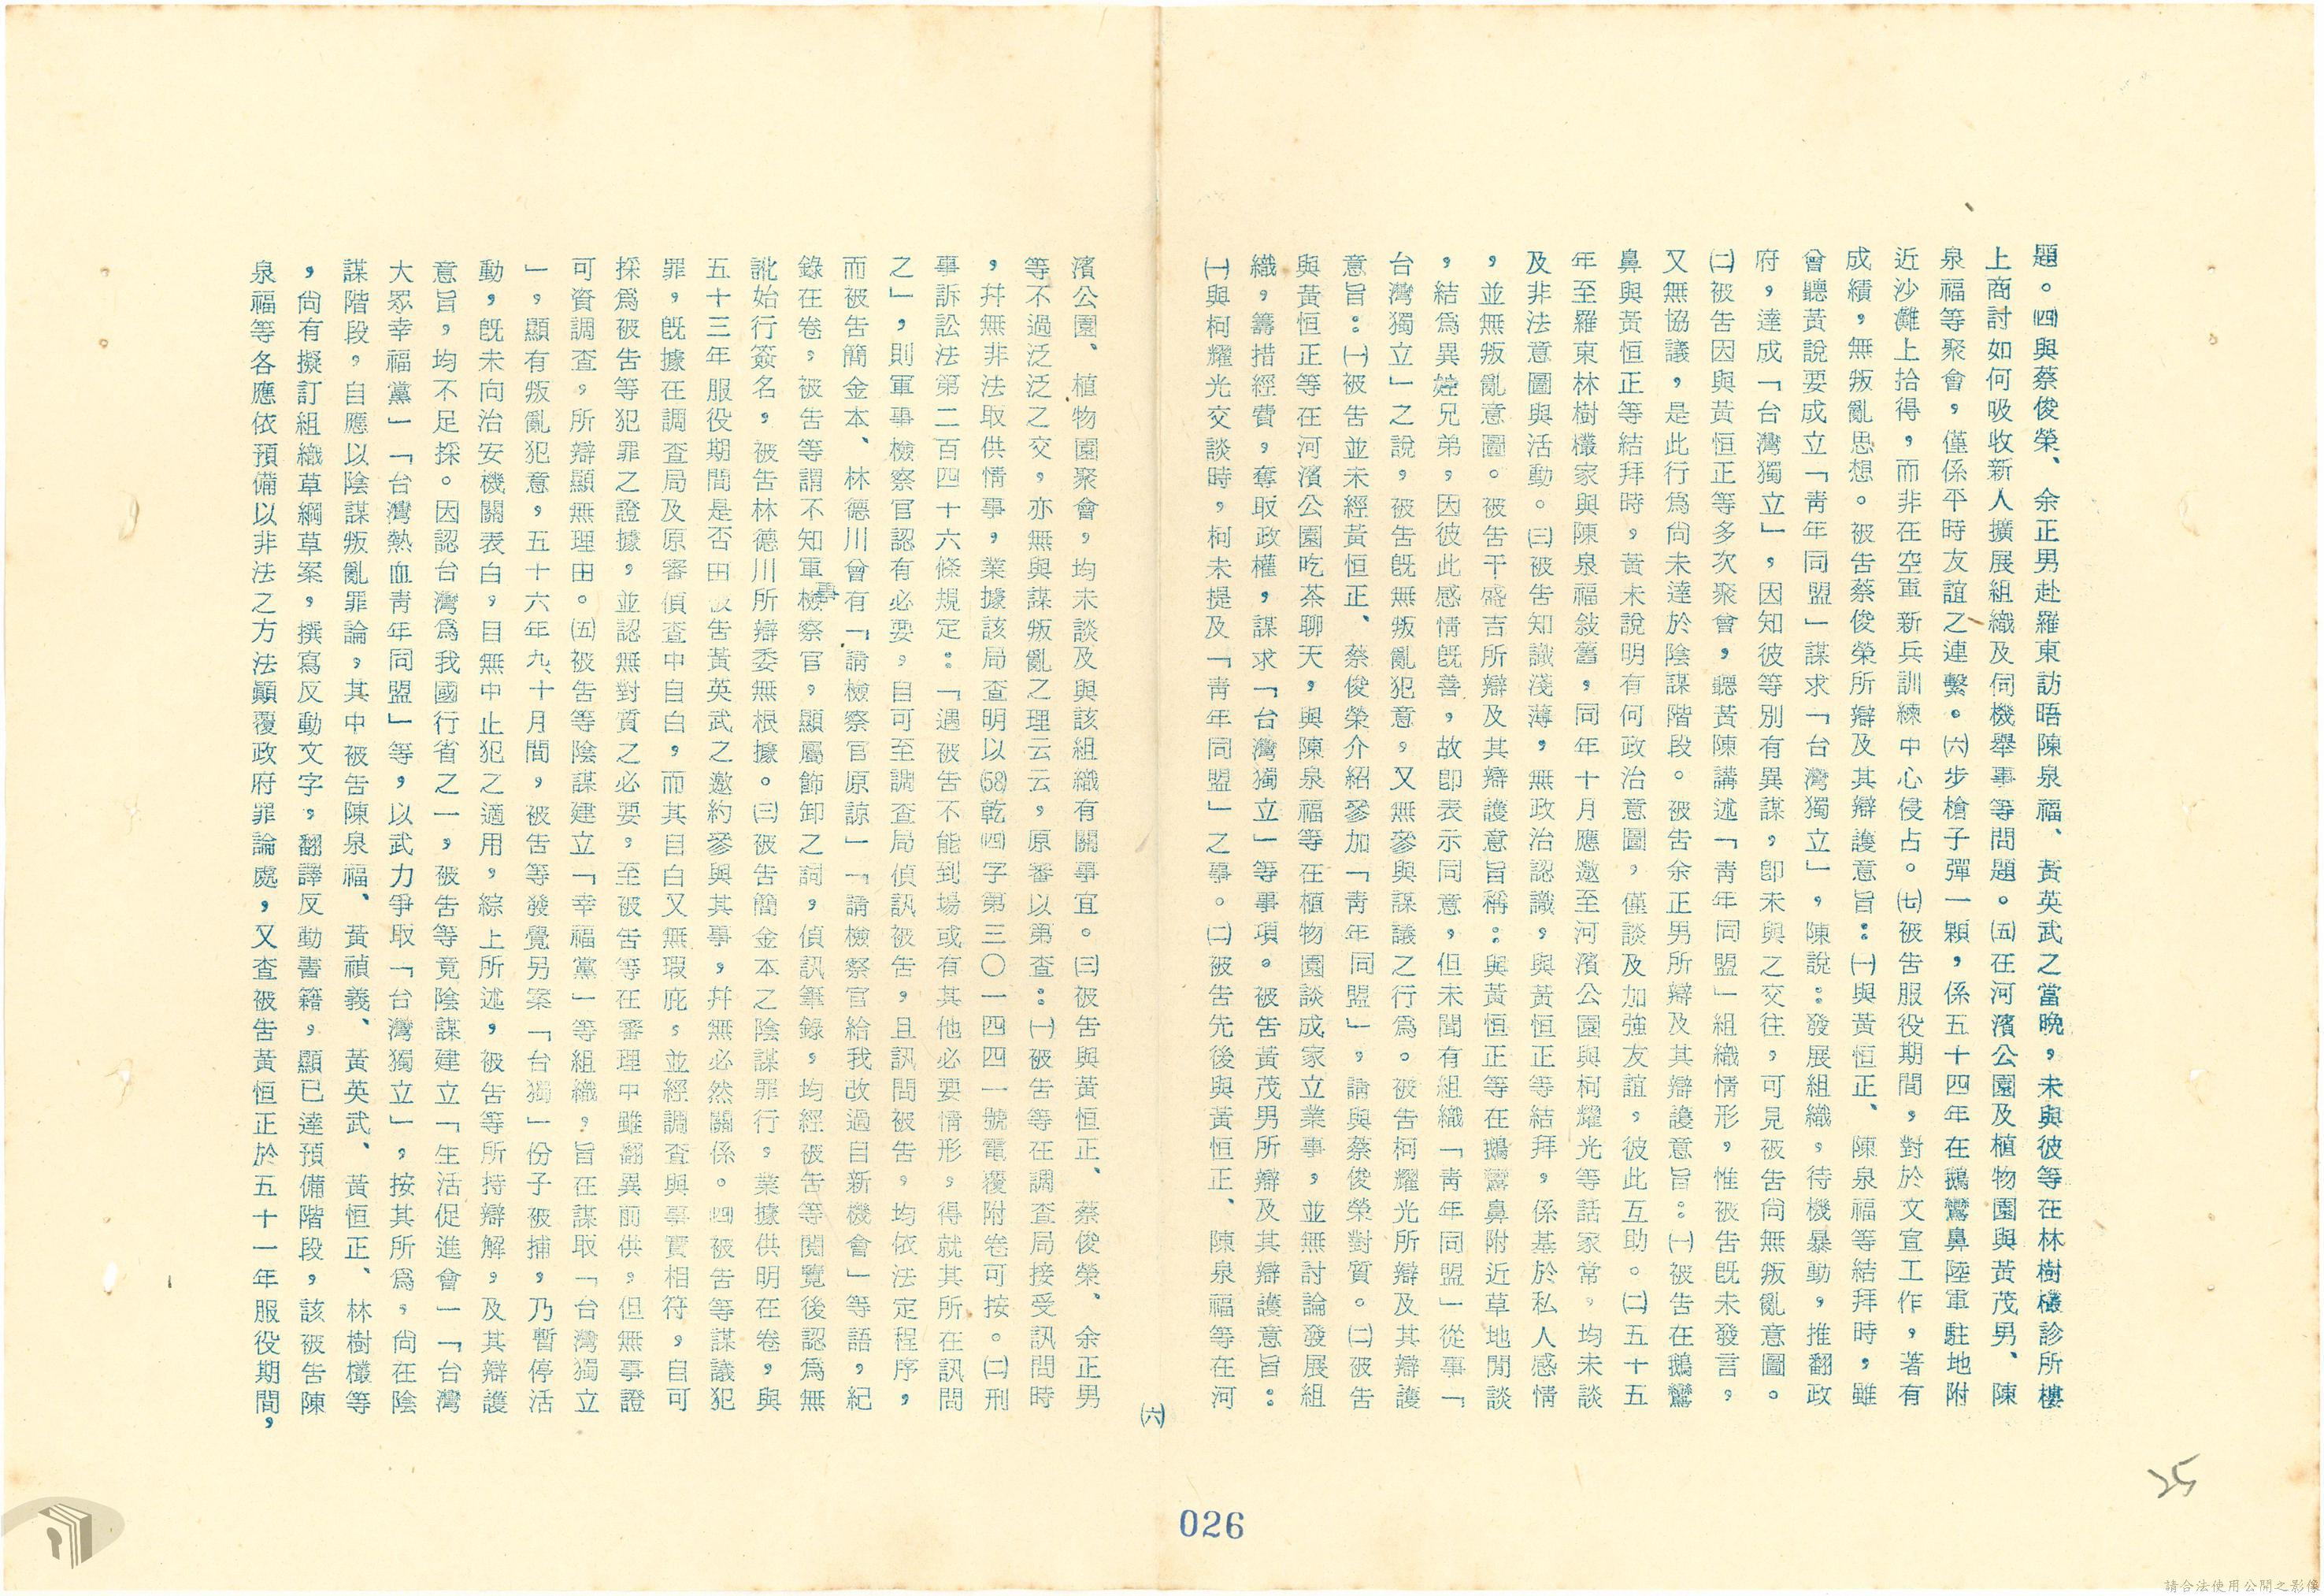 題。㈣與蔡俊榮、余正男赴羅東訪晤陳泉福、黃英武之當晚，未與彼等在林樹欉診所樓
上商討如何吸收新人擴展組織及伺機舉事等問題。㈤在河濱公園及植物園與黃茂男、陳
泉福等聚會，僅係平時友誼之連繫。㈥步槍子彈一顆，係五十四年在鵝鸞鼻陸軍駐地附
近沙灘上拾得，而非在空軍新兵訓練中心侵占。㈦被告服役期間，對於文宣工作，著有
成績，無叛亂思想。被告蔡俊榮所辯及其辯護意旨：㈠與黃恒正、陳泉福等結拜時，雖
曾聽黃說要成立「青年同盟」謀求「台灣獨立」，陳說：發展組織，待機暴動，推翻政
府，達成「台灣獨立」，因知彼等別有異謀，卽未與之交往，可見被告尙無叛亂意圖。
㈡被告因與黃恒正等多次聚會，聽黃陳講述「青年同盟」組織情形，惟被告旣未發言，
又無協議，是此行爲尙未達於陰謀階段。被告余正男所辯及其辯護意旨：㈠被告在鵝鸞
鼻與黃恒正等結拜時，黃未說明有何政治意圖，僅談及加強友誼，彼此互助。㈡五十五
年至羅東林樹欉家與陳泉福敍舊，同年十月應邀至河濱公園與柯耀光等話家常，均未談
及非法意圖與活動。㈢被告知識淺薄，無政治認識，與黃恒正等結拜，係基於私人感情
，並無叛亂意圖。被告干盛吉所辯及其辯護意旨稱：與黃恒正等在鵝鸞鼻附近草地閒談
，結爲異姓兄弟，因彼此感情旣善，故卽表示同意，但未聞有組織「靑年同盟」從事「
台灣獨立」之說，被告旣無叛亂犯意，又無參與謀議之行爲。被告柯耀光所辯及其辯護
意旨：㈠被告並未經黃恒正、蔡俊榮介紹參加「靑年同盟」，請與蔡俊榮對質。㈡被告
與黃恒正等在河濱公園吃茶聊天，與陳泉福等在植物園談成家立業事，並無討論發展組
織，籌措經費，奪取政權，謀求「台灣獨立」等事項。被告黃茂男所辯及其辯護意旨：
㈠與柯耀光交談時，柯未提及「青年同盟」之事。㈡被告先後與黃恒正、陳泉福等在河
㈥
濱公園、植物園聚會，均未談及與該組織有關事宜。㈢被告與黃恒正、蔡俊榮、余正男
等不過泛泛之交，亦無與謀叛亂之理云云，原審以第查：㈠被告等在調查局接受訊問時
，幷無非法取供情事，業據該局查明以(58)乾㈣字第三〇一四四一號電覆附卷可按。㈡刑
事訴訟法第二百四十六條規定：「遇被告不能到場或有其他必要情形，得就其所在訊問
之」，則軍事檢察官認有必要，自可至調查局偵訊被告，且訊問被告，均依法定程序，
而被告簡金本、林德川會有「請檢察官原諒」「請檢察官給我改過自新機會」等語，紀
錄在卷，被告等謂不知軍事檢察官，顯屬飾卸之詞，偵訊筆錄，均經被告等閱覽後認爲無
訛始行簽名，被告林德川所辯委無根據。㈢被告簡金本之陰謀罪行，業據供明在卷，與
五十三年服役期間是否由被告黃英武之邀約參與其事，幷無必然關係。㈣被告等謀議犯
罪，旣據在調查局及原審偵查中自白，而其自白又無瑕疵，並經調查與事實相符，自可
採爲被告等犯罪之證據，並認無對質之必要，至被告等在審理中雖翻異前供，但無事證
可資調查，所辯顯無理由。㈤被告等陰謀建立「幸福黨」等組織，旨在謀取「台灣獨立
」，顯有叛亂犯意，五十六年九、十月間，被告等發覺另案「台獨」份子被捕，乃暫停活
動，旣未向治安機關表白，自無中止犯之適用，綜上所述，被告等所持辯解，及其辯護
意旨，均不足採。因認台灣爲我國行省之一，被告等竟陰謀建立「生活促進會」「台灣
大眾幸福黨」「台灣熱血青年同盟」等，以武力爭取「台灣獨立」，按其所爲，尙在陰
謀階段，自應以陰謀叛亂罪論，其中被告陳泉福、黃禎義、黃英武、黃恒正、林樹欉等
，尙有擬訂組織草綱草案，撰寫反動文字，翻譯反動書籍，顯已達預備階段，該被告陳
泉福等各應依預備以非法之方法顚覆政府罪論處，又查被告黃恒正於五十一年服役期間，
026
25
請合法使用公開之影像